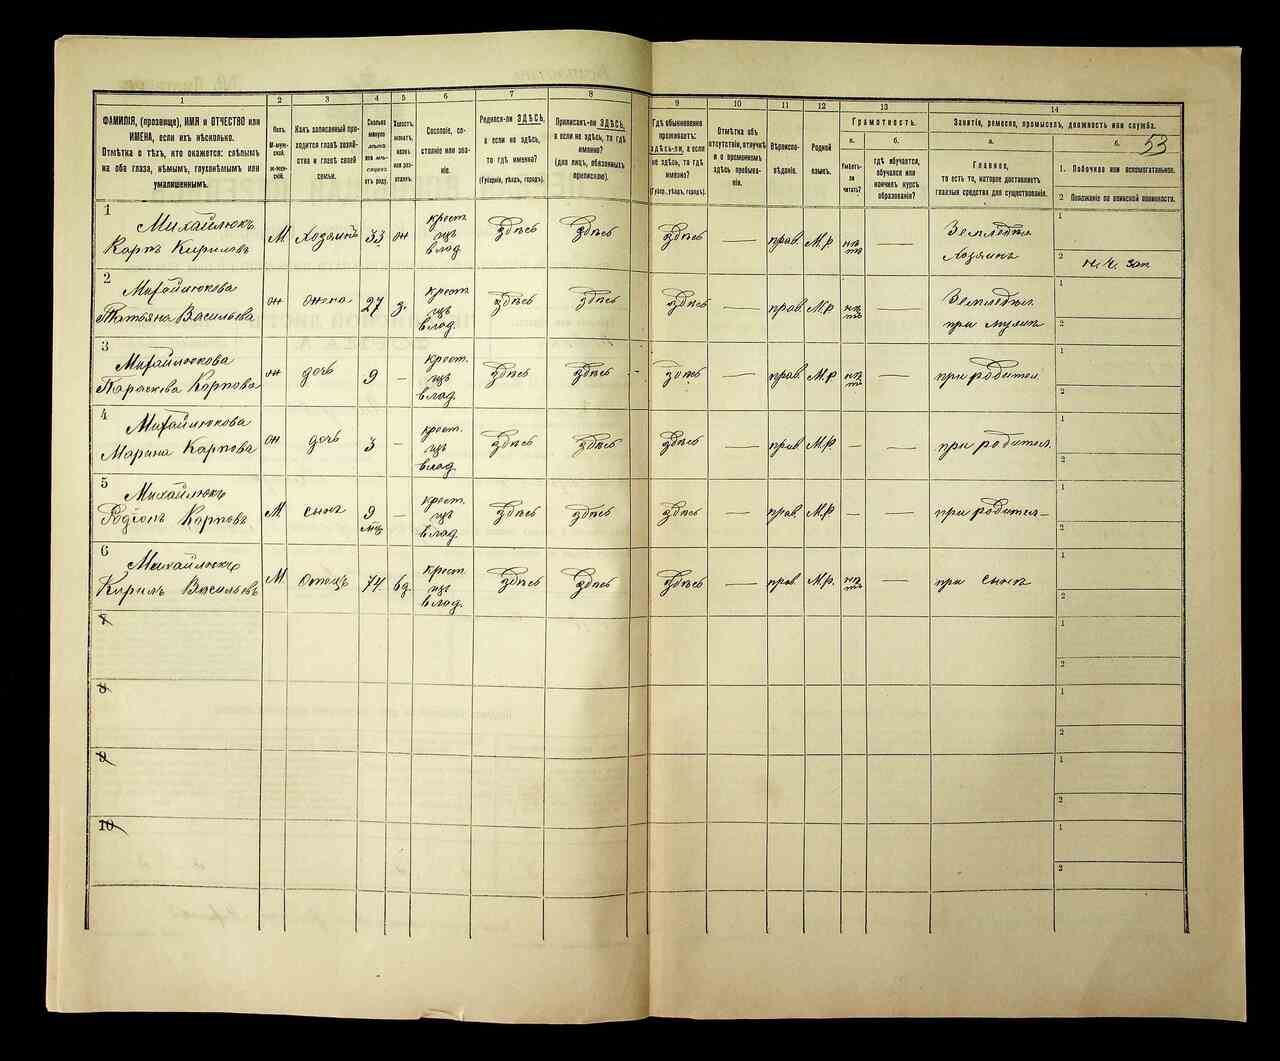 1
2
3
4
5
6
7
8
9
10
11
12
13
14
ФАМИЛІЯ, (прозвище), ИМЯ и ОТЧЕСТВО или
ИМЕНА, если ихъ нѣсколько.
Отмѣтка о тѣхъ, кто окажется: слѣпымъ
на оба глаза, нѣмымъ, глухонѣмымъ или
умалишеннымъ.
Полъ.
М-муж-
ской.
Ж-жен-
скій.
Какъ записанный при-
ходится главѣ хозяй-
ства и главѣ своей
семьи.
Сколько
минуло
лѣтъ
отъ роду.
Холостъ,
женатъ,
вдовъ
или раз-
веденъ.
Сословіе, со-
стояніе или зва-
ніе.
Родился-ли ЗДѢСЬ,
а если не здѣсь,
то гдѣ именно?
(Губернія, уѣздъ, городъ).
Приписанъ-ли ЗДѢСЬ,
а если не здѣсь, то гдѣ
именно?
(для лицъ, обязанныхъ
припискою).
Гдѣ обыкновенно
проживаетъ:
здѣсь-ли, а если
не здѣсь, то гдѣ
именно?
(Губер., уѣздъ, городъ).
Отмѣтка объ
отсутствіи, отлучкѣ
и о временномъ
здѣсь пребыва-
ніи.
Вѣроиспо-
вѣданіе.
Родной
языкъ.
Грамотность.
а.
б.
Умѣетъ-
ли
читать?
гдѣ обучается,
обучался или
кончилъ курсъ
образованія?
Занятіе, ремесло, промыселъ, должность или служба.
а.
б.
53
Главное,
то есть то, которое доставляетъ
главныя средства для существованія.
1. Побочное или вспомогательное.
2 Положеніе по воинской повинности.
1
Михайлюкъ
Карпъ Кириловъ
М.
Хозяинъ
33
он
крест.
влад.
здѣсь
здѣсь
здѣсь
—
прав.
М.р.
—
Земледѣл.
Хозяинъ
1
2
2
Михайлюкова
Татьяна Васильева
жена
27
з.
крест.
влад.
здѣсь
здѣсь
здѣсь
—
прав.
М.р.
—
Земледѣл.
при мужѣ
1
2
3
Михайлюкова
Параскева Карпова
дочь
9
—
крест.
влад.
здѣсь
здѣсь
здѣсь
—
прав.
М.р.
—
при родител.
1
2
4
Михайлюкова
Марина Карпова
дочь
3
—
крест.
влад.
здѣсь
здѣсь
здѣсь
—
прав.
М.р.
—
—
при родител.
1
2
5
Михайлюкъ
Родіонъ Карповъ
М.
сынъ
9
мц
—
крест.
влад.
здѣсь
здѣсь
здѣсь
—
прав.
М.р.
—
—
при родител.
1
2
6
Михайлюкъ
Кирилъ Васильевъ
М.
Отецъ
74
вд.
крест.
влад.
здѣсь
здѣсь
здѣсь
—
прав.
М.р.
—
при сынѣ
1
2
7
1
2
8
1
2
9
1
2
10
1
2